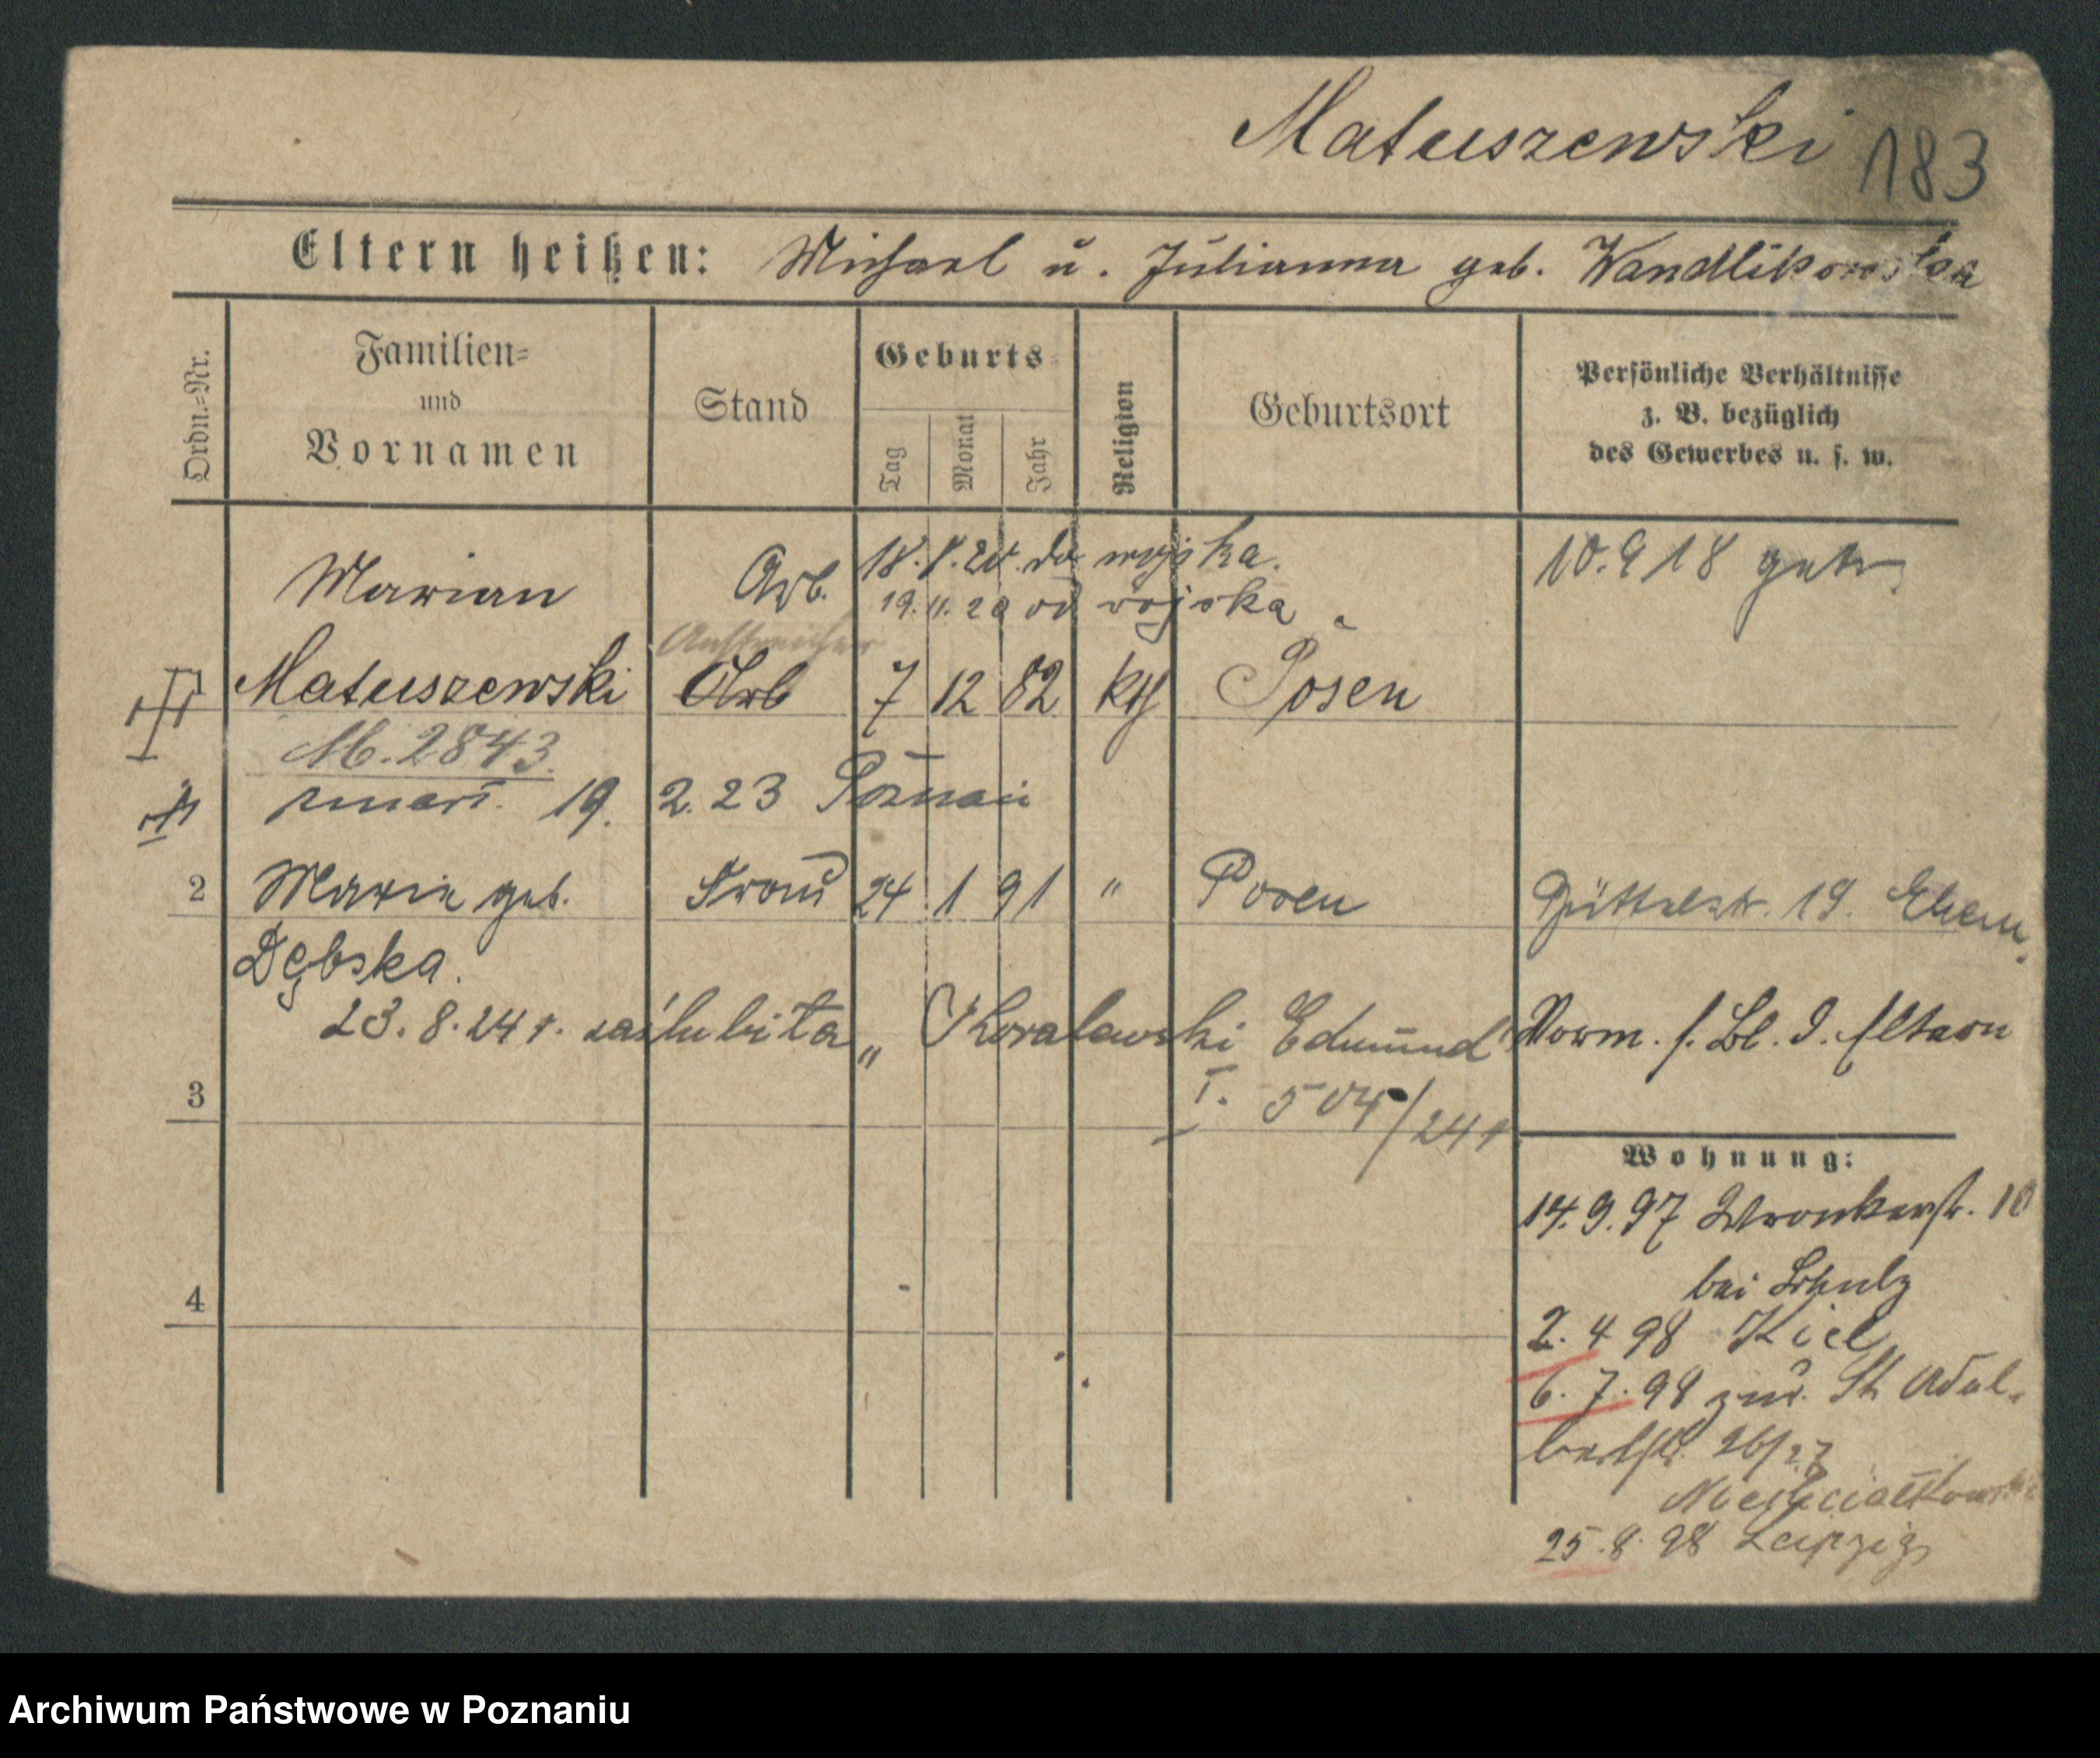 Matuszewski 183
Eltern heißen: Michael u. Julianna geb. Wandlikowska
Ordn.=Nr.
Familien=
und
Vornamen
Stand
Geburts=
Tag
Monat
Jahr
Religion
Geburtsort
Persönliche Verhältnisse
z. B. bezüglich
des Gewerbes u. s. w.
18. 8. 20. do wojska.
Marian Arb. 10. 9 18 getr.
19. 11. 20 od wojska
Anstreicher
Matuszewski Arb 7 12 82 kth Posen
M. 2843.
zmarł. 19. 2. 23 Poznań
2 Maria geb. Frau 24 1 91 " Posen 19.
Dębska.
23. 8. 24 r. zaślubiła " Koralewski Edmund Vorm. s. Bl. d. Eltern
I. 504/24 r
3
Wohnung:
14. 9. 97 Wronkerstr. 10
bei Schulz
4
2. 4 98 Kiel
6. 7. 98 zur. St. Adal-
bertstr. 26/27
25. 8. 98 Leipzig
Archiwum Państwowe w Poznaniu